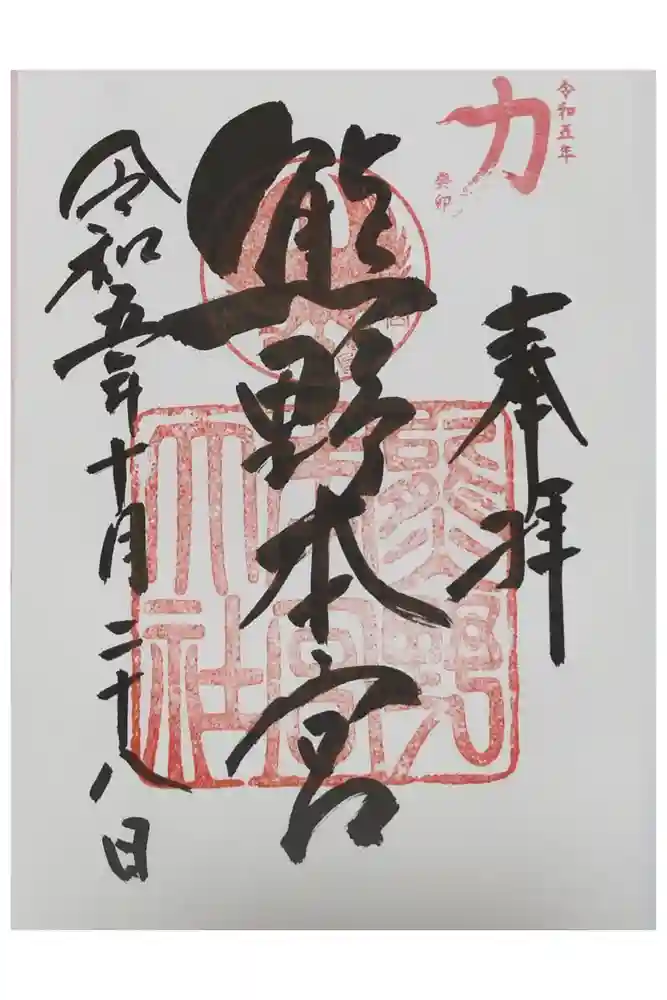 力
令和五年
癸卯
奉拝
熊野本宮
令和五年十月二十八日
熊野
本宮
大社